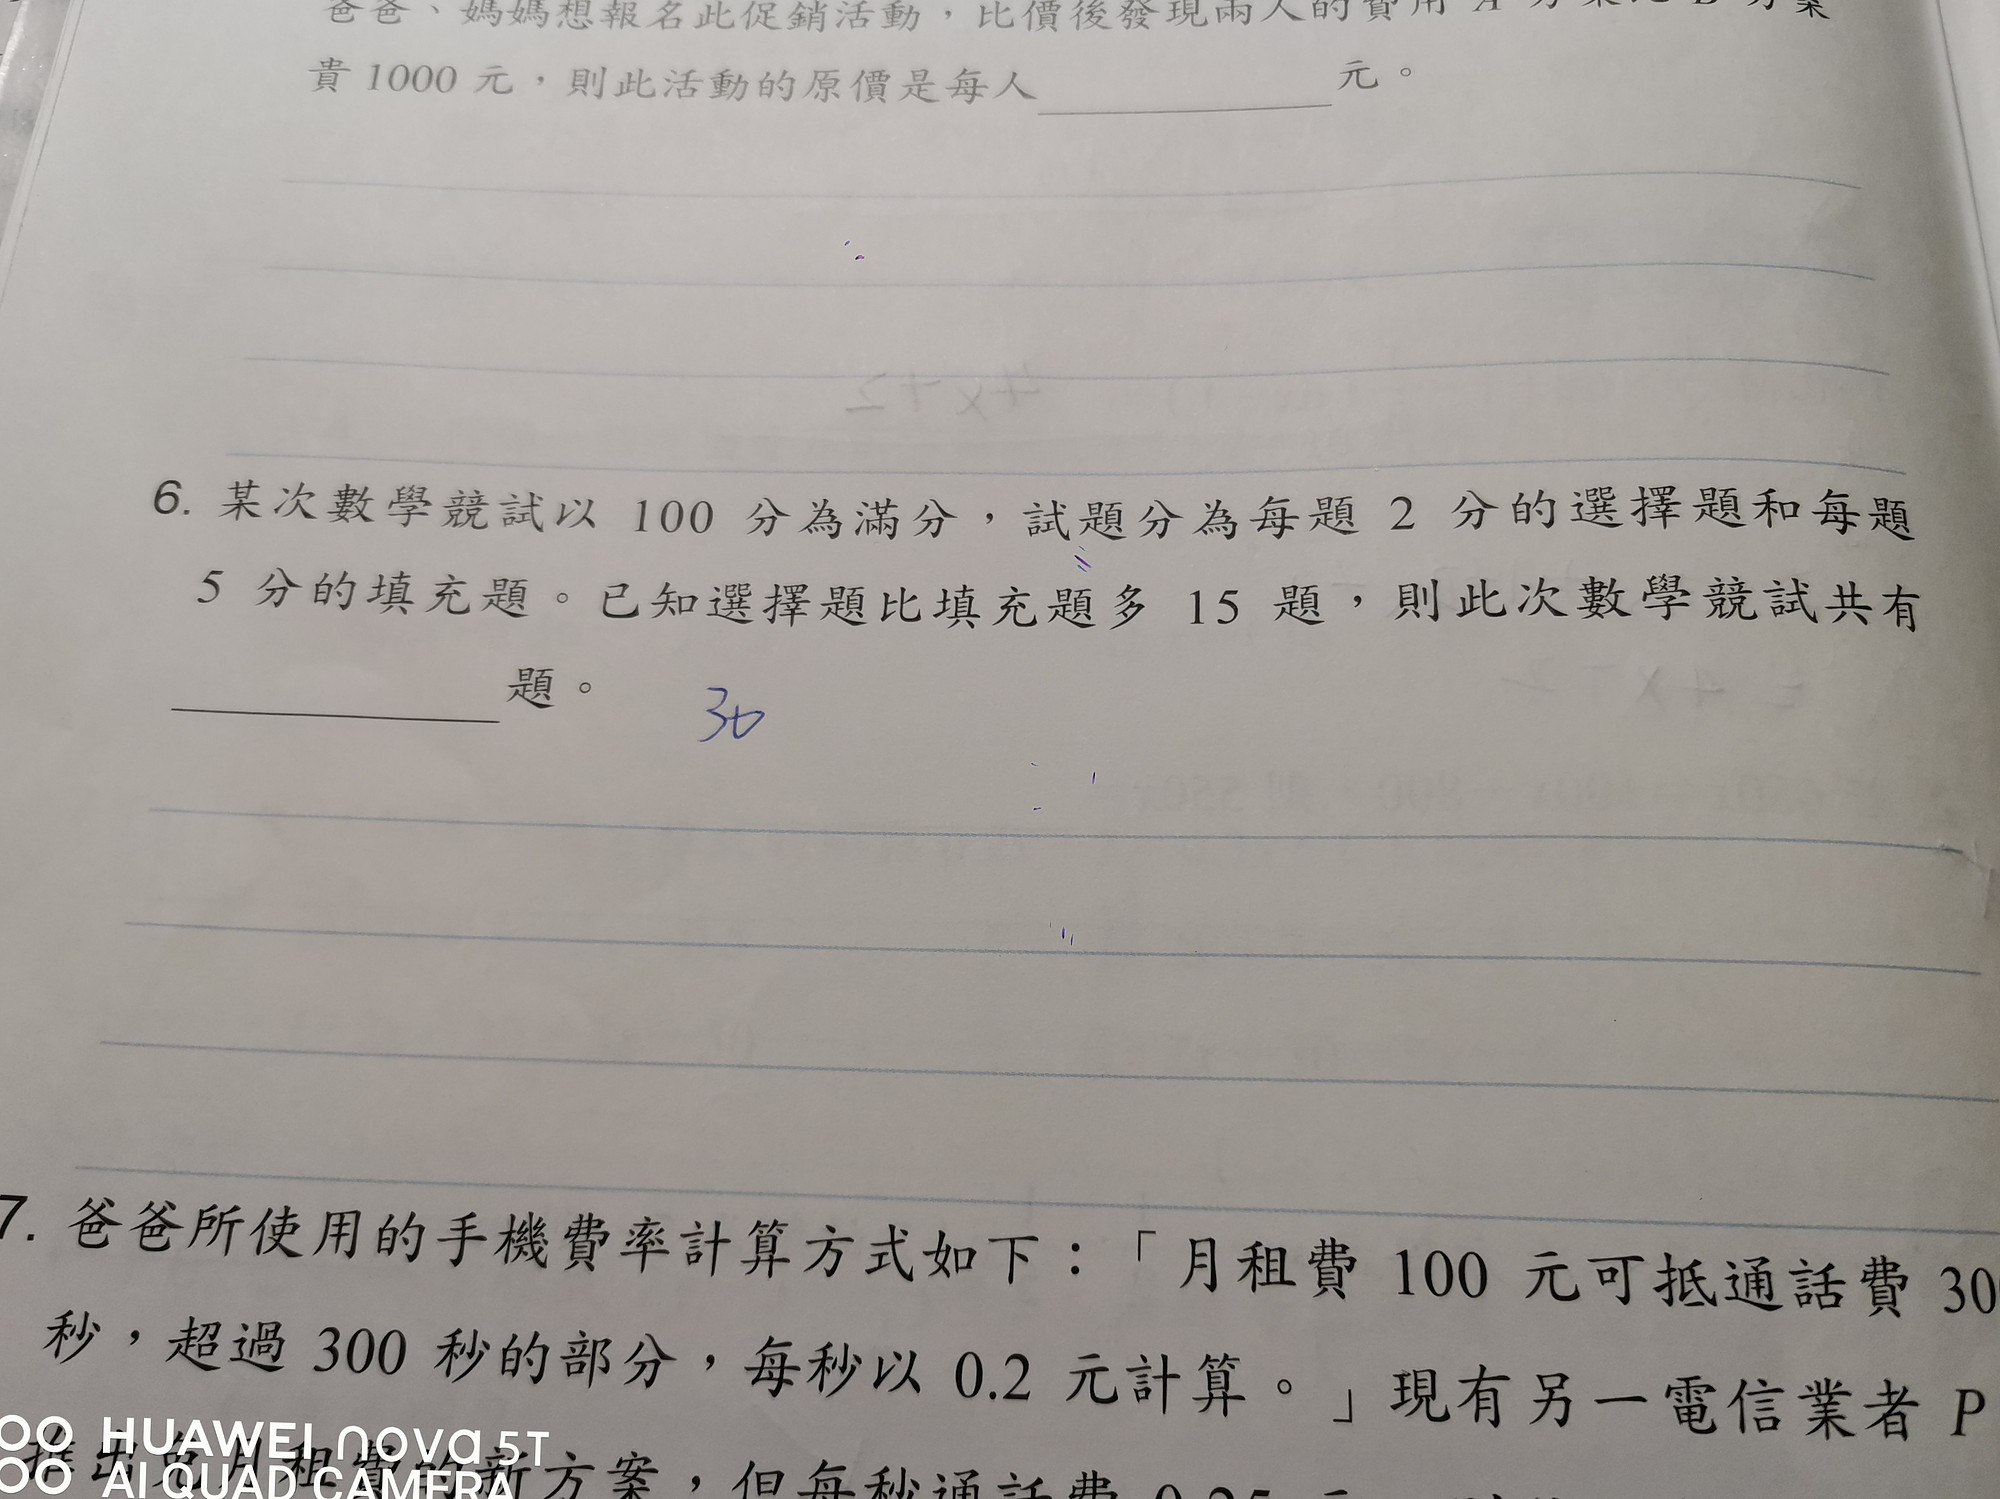 爸爸、媽媽想報名此促銷活動，比價後發現兩人的費用 A 方案比 B 方案
貴 1000 元，則此活動的原價是每人 元。
4x+2
6. 某次數學競試以 100 分為滿分，試題分為每題 2 分的選擇題和每題
5 分的填充題。已知選擇題比填充題多 15 題，則此次數學競試共有
題。 30
= 4x+2
7. 爸爸所使用的手機費率計算方式如下：「月租費 100 元可抵通話費 30
秒，超過 300 秒的部分，每秒以 0.2 元計算。」現有另一電信業者 P
推出免月租費的新方案，但每秒通話費 0.25 元
HUAWEI nova 5T
AI QUAD CAMERA